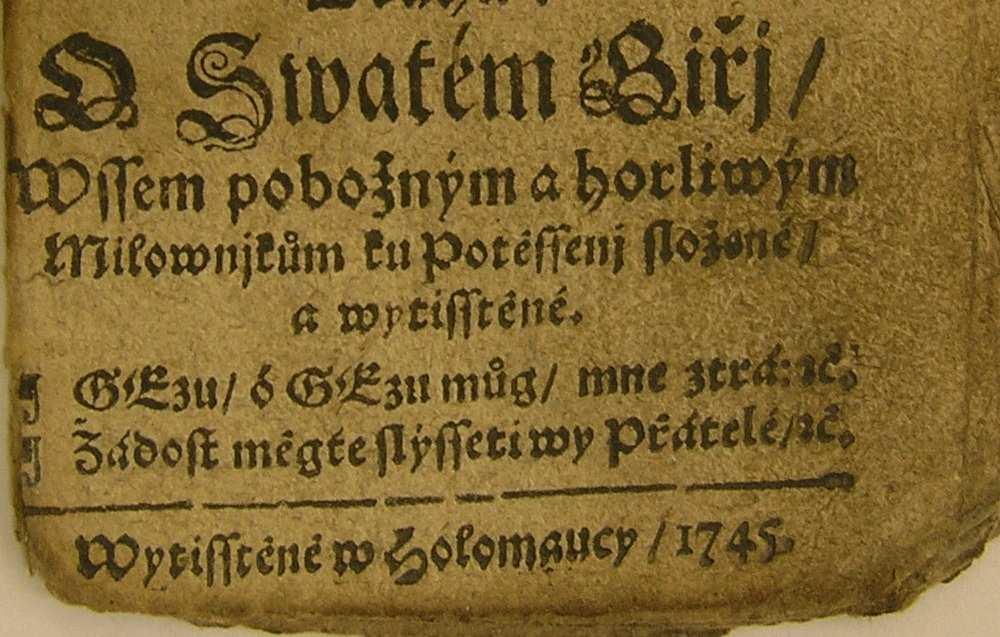 O Swatém Biřj /
Wssem pobožným a horliwým
Milownjkům ku Potěssenj složené /
a wytisstěné.
GEzu / ó GEzu můg / mne ztrá: ꝛč.
Žádost měgte slyssseti wy Přátelé / ꝛč.
Wytisstěné w Holomaucy / 1745.